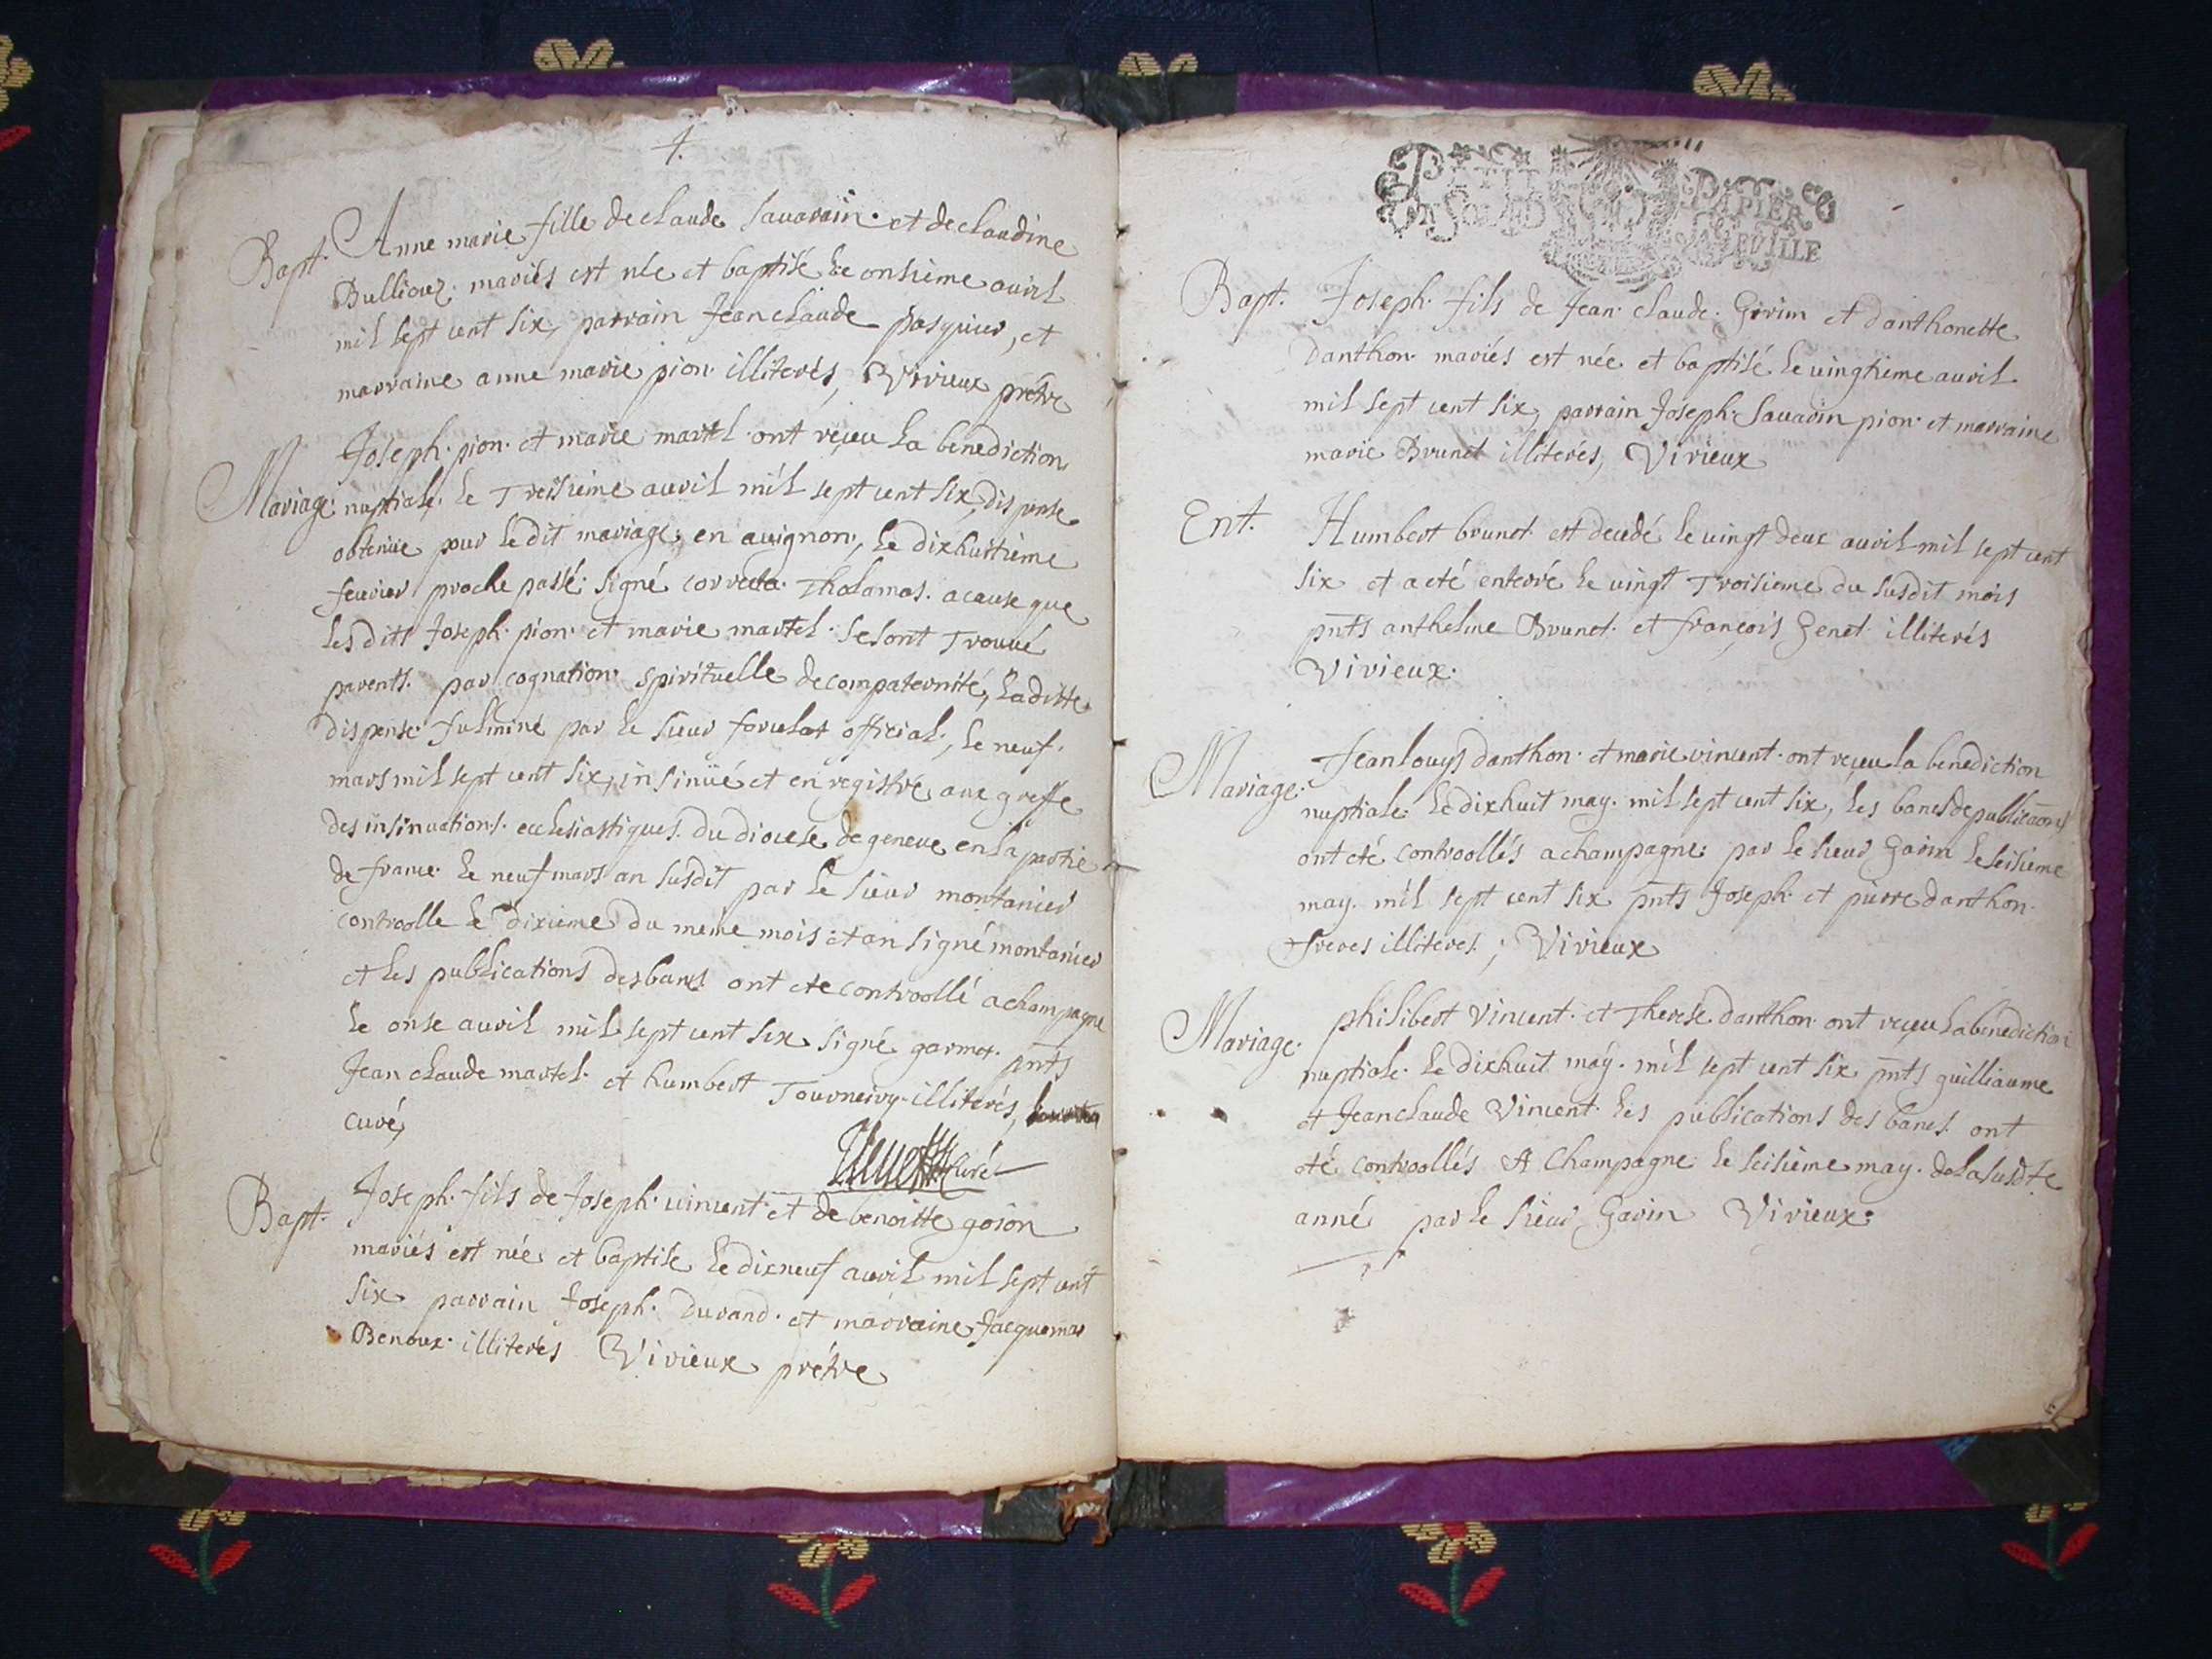 4.
Bapt. Anne marie fille de claude savarin et de claudine
Bulliouz mariés est née et baptisé le onsième avril
mil sept cent six, parrain Jean claude pasquier, et
marraine anne marie pion illiterés, Virieux prétre
Joseph pion et marie martel ont reçeu la benediction
Mariage. nuptiale le Treisième avril mil sept cent six, dispense
obtenüe pour le dit mariage en avignon, le dixhuitième
fevrier proche passé signé correcta Tholamas. a cause que
les dits Joseph pion et marie martel se sont Trouvé
parents par cognation spirituelle de compaternité, la ditte
dispense fulminé par le sieur official, le neuf
mars mil sept cent six, insinüé et enregistré aux greffe
des insinuations ecclesiastiques du diocese de geneve en la partie
de france le neuf mars an susdit par le sieur montanier
controolle le dixieme du meme mois et an signé montanier
et les publications des bans ont ete controollé a champagne
le onse avril mil sept cent six signé pnts
Jean claude martel et humbert illiterés,
curé,
Curé
Bapt. Joseph fils de Joseph vincent et de benoitte goion
mariés est née et baptise le dixneuf avril mil sept cent
six parrain Joseph Durand et marraine Jacquema
Benoux illiterés Virieux prétre
PETIT PAPIER
FEUILLE
Bapt. Joseph fils de Jean claude Girin et d'anthonette
danthon mariés est née et baptisé le vingtième avril
mil sept cent six, parrain Joseph Savarin pion et marraine
marie Brunet illiterés, Virieux
Ent. Humbert brunet est decedé le vingt deux avril mil sept cent
six et a eté enterré le vingt Troisieme du susdit mois
pnts anthelme Brunet et françois Genet illiterés
Virieux.
Mariage. Jean louys danthon et marie vincent ont reçeu la benediction
nuptiale le dixhuit may mil sept cent six, les bancs de publicaons
ont eté controollés a champagne par le sieur Garin le seisieme
may mil sept cent six pnts Joseph et pierre danthon
freres illiteres, Virieux
Mariage. philibert Vincent et Therese danthon ont reçeu la bénediction
nuptiale le dixhuit may mil sept cent six pnts guilliaume
et Jean claude Vincent les publications des bancs ont
eté controollés A Champagne le seisième may de la susdte
anné par le sieur Garin Virieux